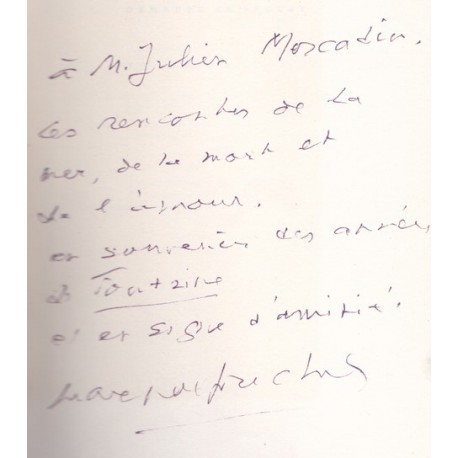 à M. Julien Moscatin.
Les rencontres de la
mer, de la mort et
de l'amour.
en souvenir des années
de
et en signe d'amitié.